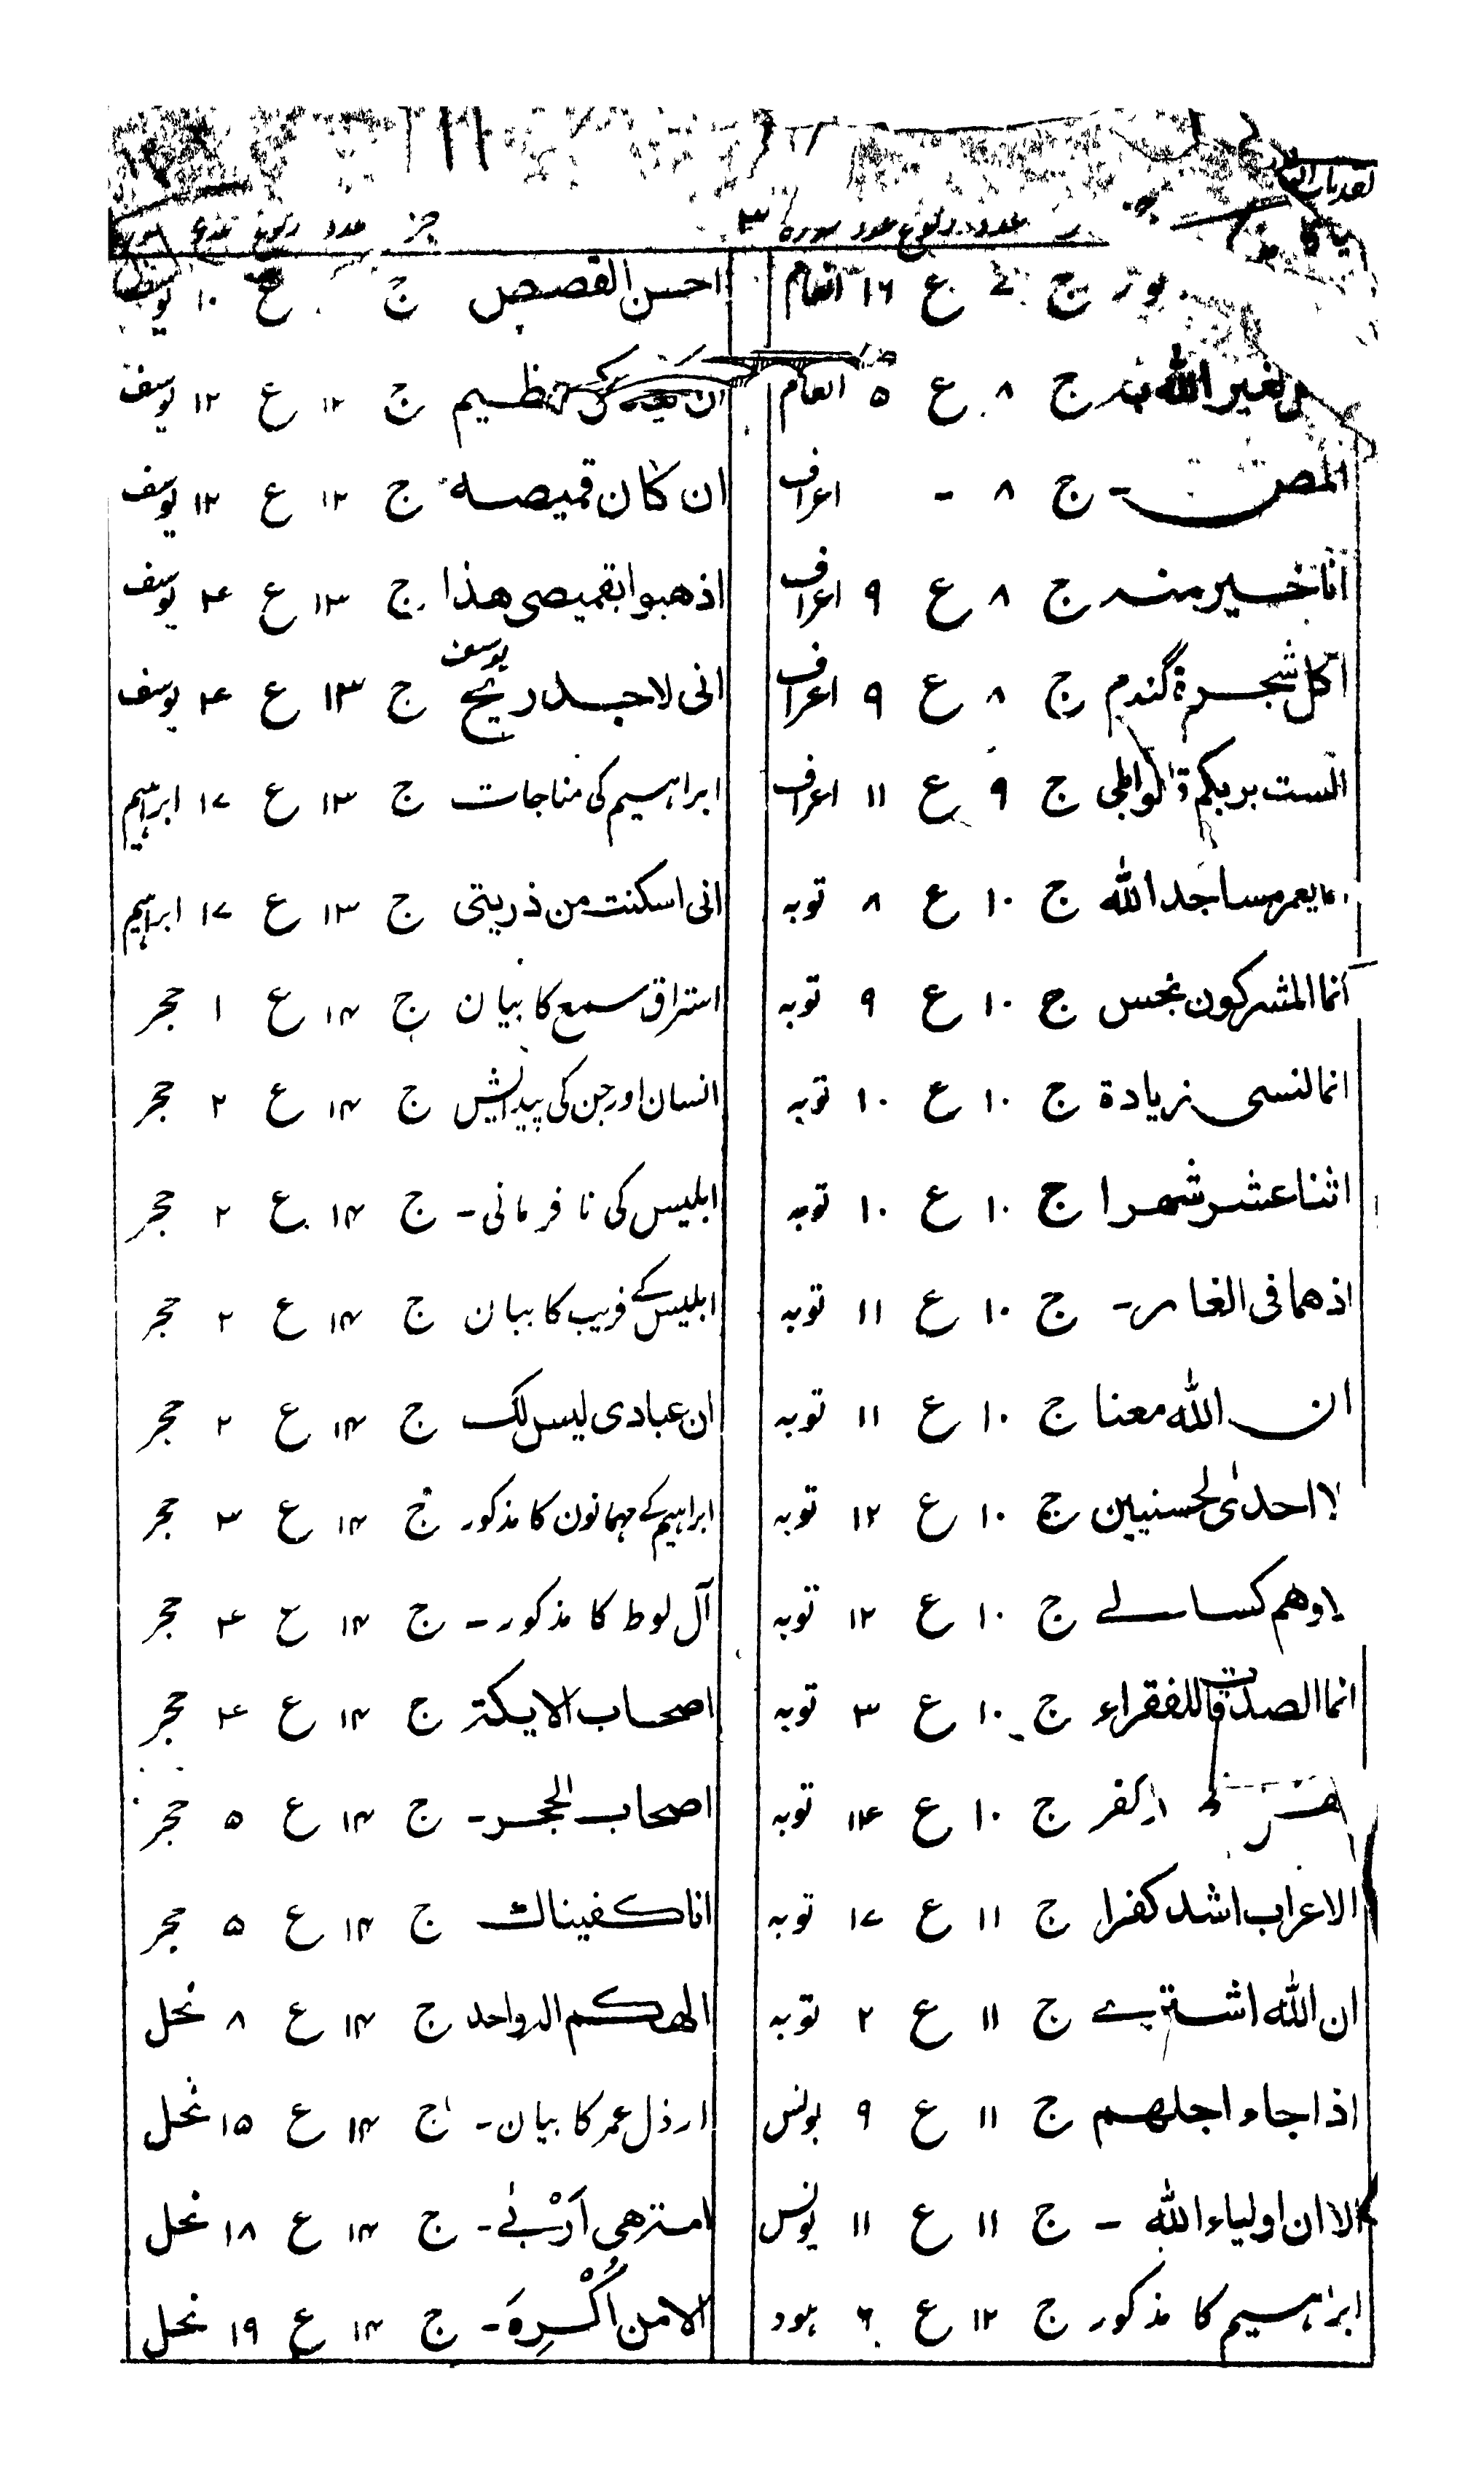 عدد رکوع عدد سورہ
جز عدد رکوع
ج ع ۱۶ انعام
لغیر اللہ بہ ج ۸ ع ۵ انعام
المص - ج ۸ - اعراف
انا خیر منہ ج ۸ ع ۹ اعراف
اکل شجرۃ گندم ج ۸ ع ۹ اعراف
الست بربکم قالوا بلی ج ۹ ع ۱۱ اعراف
انما یعمر مساجد اللہ ج ۱۰ ع ۸ توبہ
انما المشرکون نجس ج ۱۰ ع ۹ توبہ
انما لنسی زیادۃ ج ۱۰ ع ۱۰ توبہ
اثنا عشر شھرا ج ۱۰ ع ۱۰ توبہ
اذھما فی الغار - ج ۱۰ ع ۱۱ توبہ
ان اللہ معنا ج ۱۰ ع ۱۱ توبہ
لا احدی لحسنیین ج ۱۰ ع ۱۲ توبہ
لا وھم کسالے ج ۱۰ ع ۱۲ توبہ
انما الصدقات للفقراء ج ۱۰ ع ۳ توبہ
ج ۱۰ ع ۱۴ توبہ
الاعراب اشد کفرا ج ۱۱ ع ۱۷ توبہ
ان اللہ اشترے ج ۱۱ ع ۲ توبہ
اذا جاء اجلھم ج ۱۱ ع ۹ یونس
الا ان اولیاء اللہ - ج ۱۱ ع ۱۱ یونس
ابراہیم کا مذکور ج ۱۲ ع ۶ ہود
احسن القصص ج ع ۱۰ یوسف
ان کیدکن عظیم ج ۱۲ ع ۱۲ یوسف
ان کان قمیصہ ج ۱۲ ع ۱۲ یوسف
اذھبوا بقمیصی ھذا ج ۱۳ ع ۴ یوسف
انی لاجد ریح یوسف ج ۱۳ ع ۴ یوسف
ابراہیم کی مناجات ج ۱۳ ع ۱۷ ابراہیم
انی اسکنت من ذریتی ج ۱۳ ع ۱۷ ابراہیم
استراق سمع کا بیان ج ۱۴ ع ۱ حجر
انسان اور جن کی پیدائش ج ۱۴ ع ۲ حجر
ابلیس کی نافرمانی - ج ۱۴ ع ۲ حجر
ابلیس کے فریب کا بیان ج ۱۴ ع ۲ حجر
ان عبادی لیس لک ج ۱۴ ع ۲ حجر
ابراہیم کے مہمانون کا مذکور ج ۱۴ ع ۳ حجر
آل لوط کا مذکور - ج ۱۴ ع ۴ حجر
اصحاب الایکۃ ج ۱۴ ع ۴ حجر
اصحاب الحجر - ج ۱۴ ع ۵ حجر
انا کفیناک ج ۱۴ ع ۵ حجر
الھکم الہ واحد ج ۱۴ ع ۸ نحل
ارذل عمر کا بیان - ج ۱۴ ع ۱۵ نحل
امۃ ھی اَرْبیٰ - ج ۱۴ ع ۱۸ نحل
الا من اُکْرِہَ - ج ۱۴ ع ۱۹ نحل